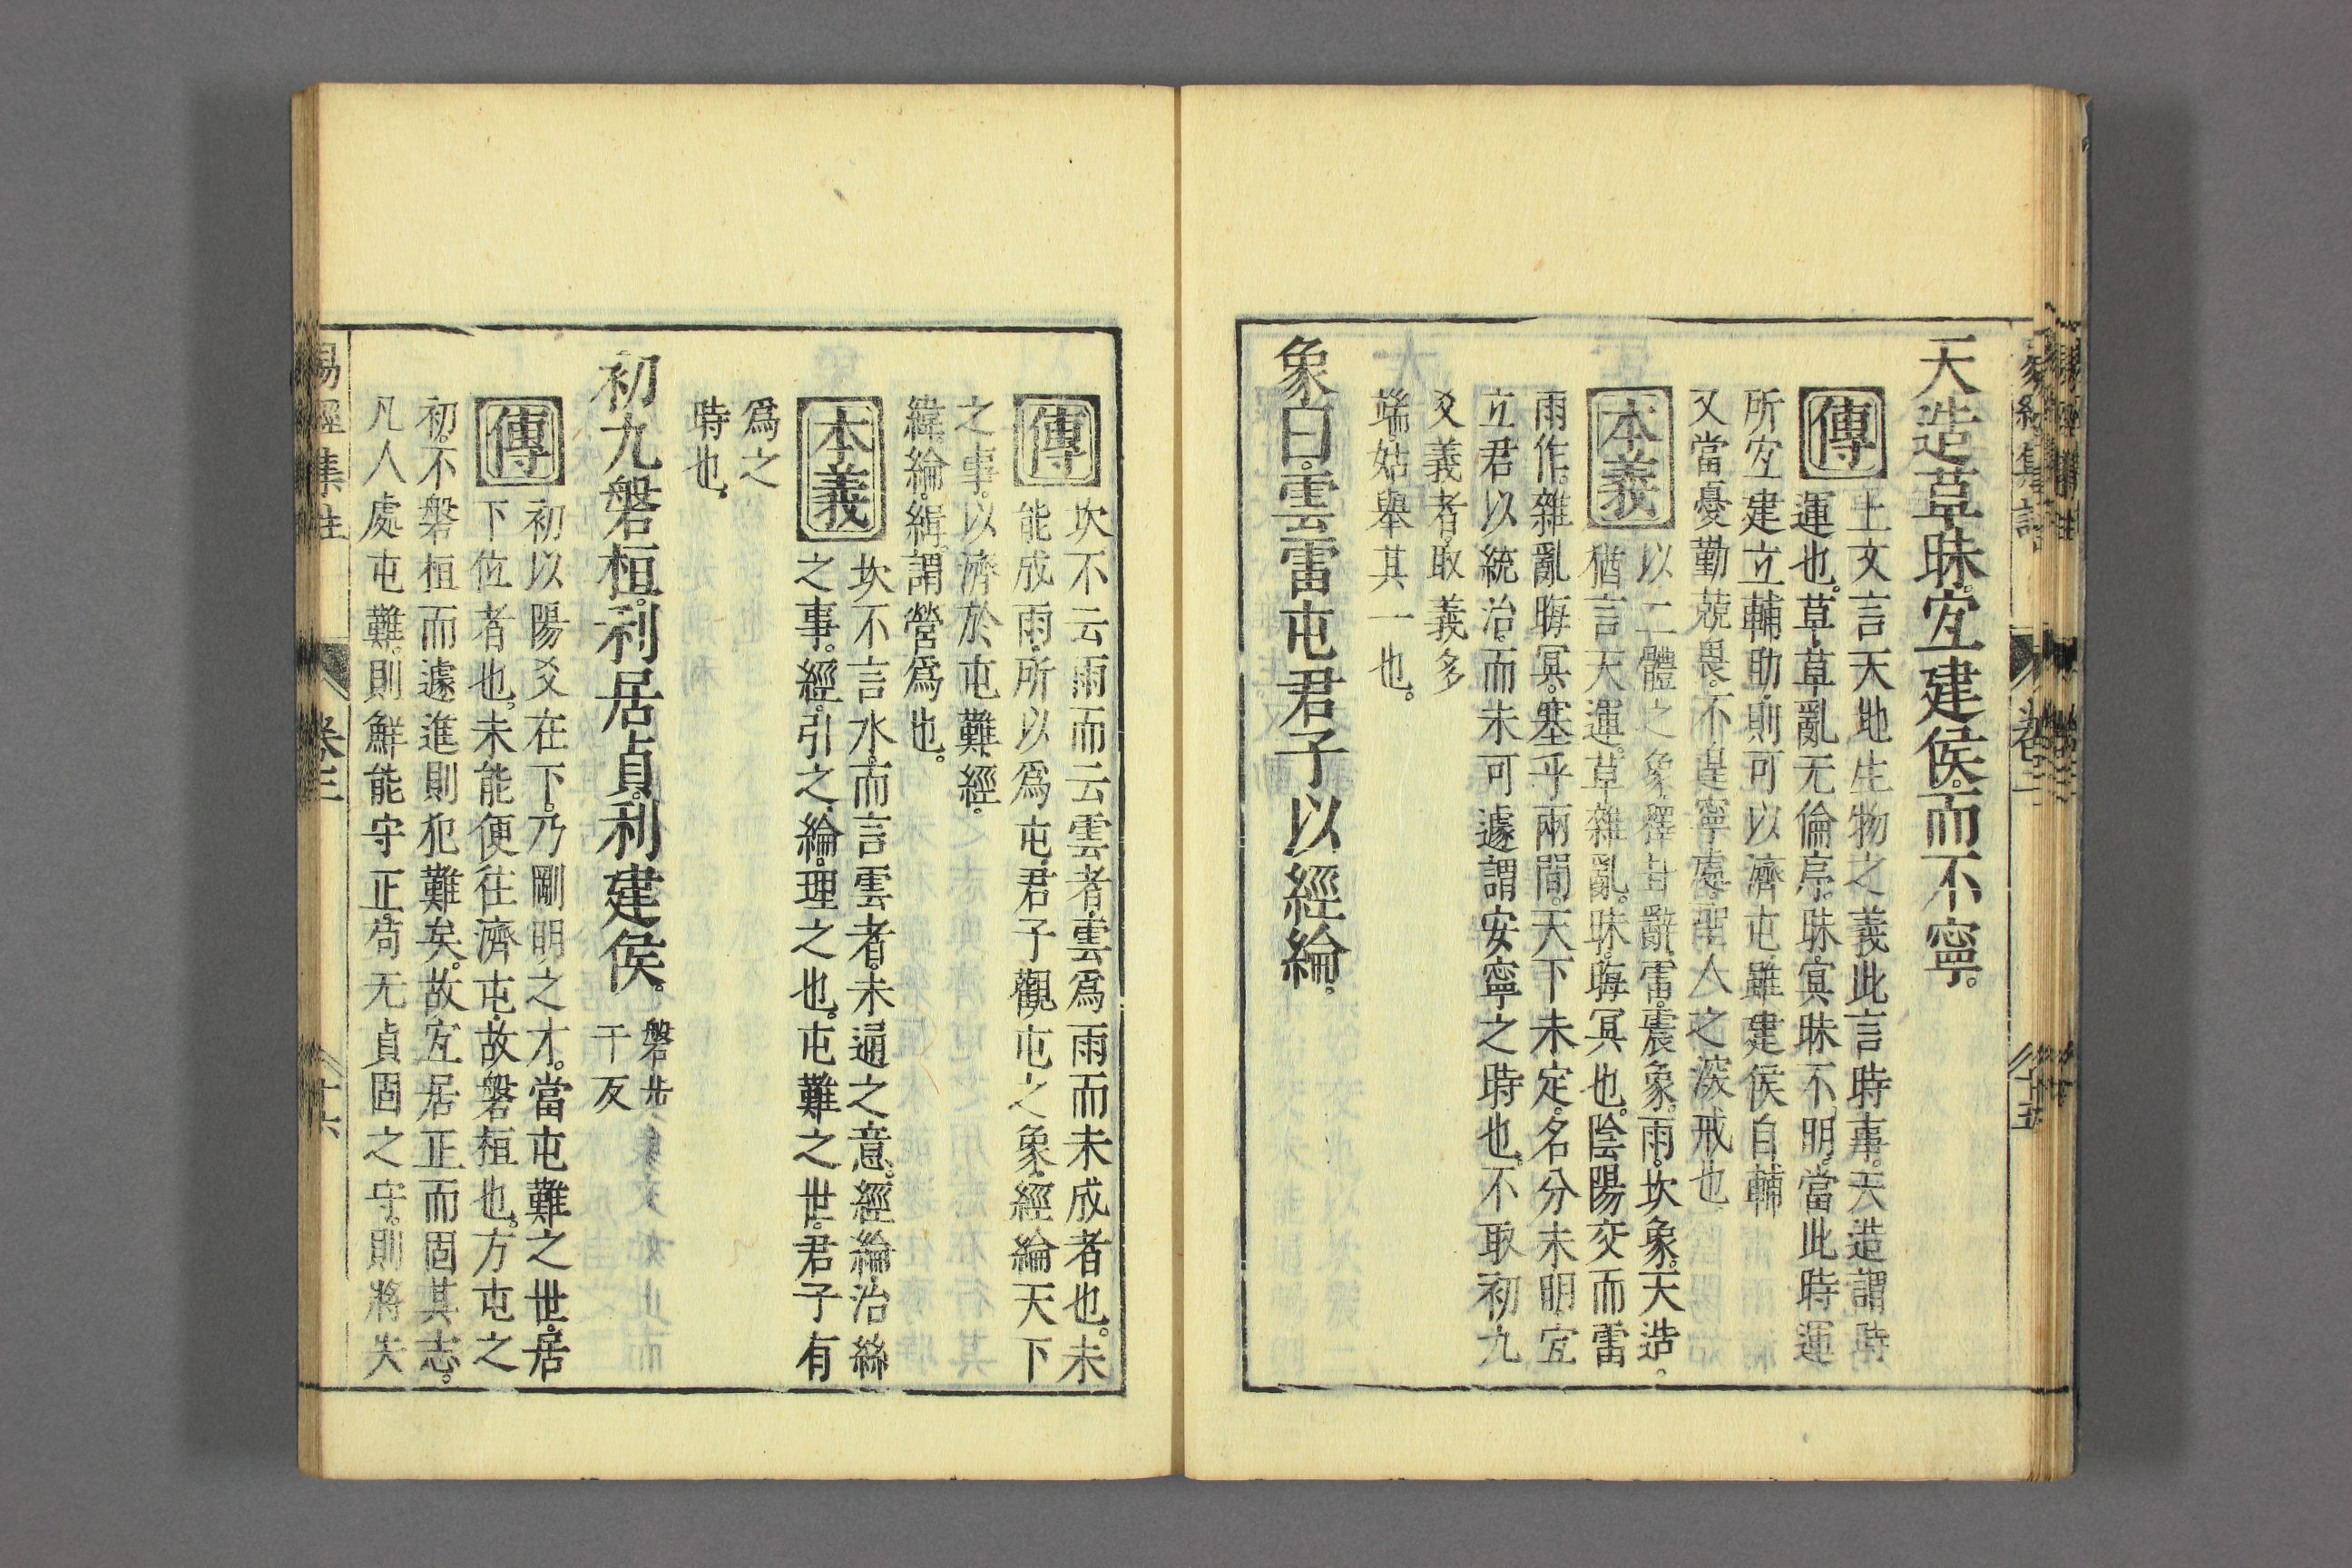 天造草昧宜建侯而不寧
傳
上文言天地生物之義此言時事天造謂時
運也草草亂无倫亰昧冥昧不明當此時運
所宜建立輔助則可以濟屯雖建侯自輔
又當憂勤兢畏不遑寧處聖人之深戒也
本義
以二體之象釋卦辭雷震象雨坎象天造
猶言天運草雜亂昧晦冥也陰陽交而雷
雨作雜亂晦冥塞乎兩間天下未定名分未明宜
立君以統治而未可遽謂安寧之時也不取初九
爻義者取義多
端姑舉其一也
象曰雲雷屯君子以經綸
傳
坎不云雨而云雲者雲爲雨而未成者也未
能成雨所以爲屯君子觀屯之象經綸天下
之事以濟於屯難經
緯綸緝謂營爲也
本義
坎不言水而言雲者未通之意經綸治絲
之事經引之綸理之也屯難之世君子有
爲之
時也
初九磐桓利居貞利建侯
磐步
干反
傳
初以陽爻在下乃剛明之才當屯難之世居
下位者也未能便往濟屯故磐桓也方屯之
初不磐桓而遽進則犯難矣故宜居正而固其志
凡人處屯難則鮮能守正苟无貞固之守則將失
易經集註
卷三
十六